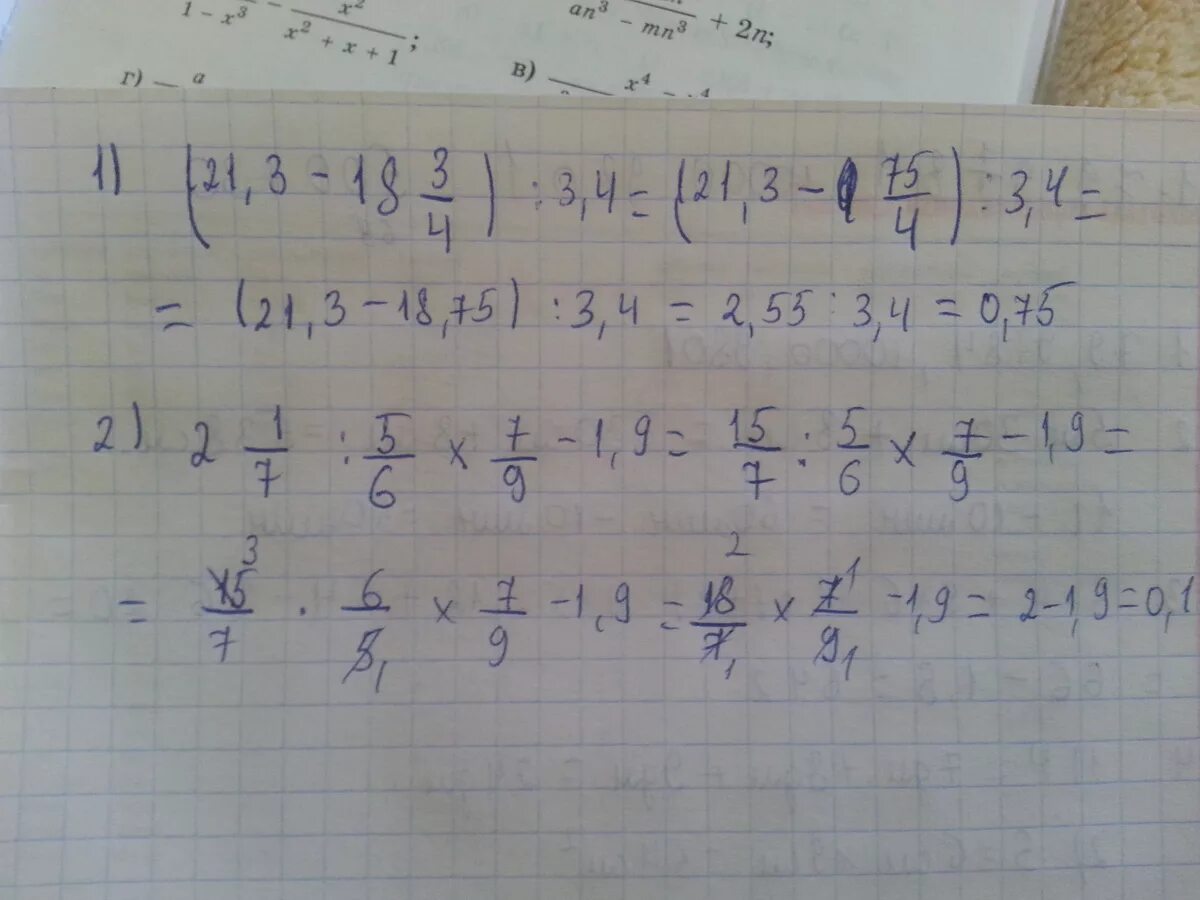 1 - x³ - x²/(x² + x + 1);
an³ - mn³ + 2n;
г) a
в) x⁴
1) (21,3 - 18 3/4) : 3,4 = (21,3 - 75/4) : 3,4 =
= (21,3 - 18,75) : 3,4 = 2,55 : 3,4 = 0,75
2) 2 1/7 : 5/6 × 7/9 - 1,9 = 15/7 : 5/6 × 7/9 - 1,9 =
3 2 1
= 15/7 · 6/5 × 7/9 - 1,9 = 18/7 × 7/9 - 1,9 = 2 - 1,9 = 0,1
1 1 1